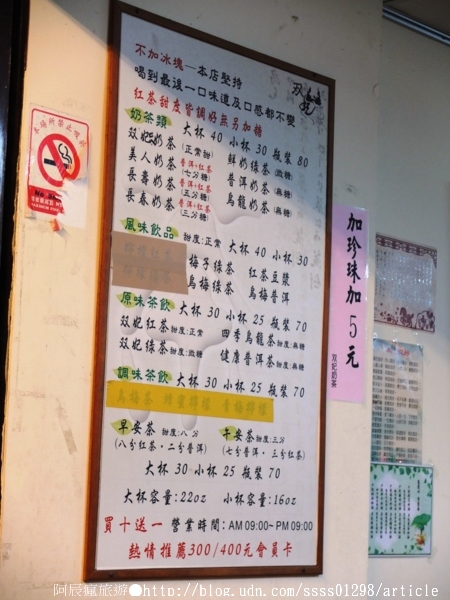 双妃
不加冰塊—本店堅持
喝到最後一口味道及口感都不變
紅茶甜度皆調好無另加糖
奶茶類 大杯 40 小杯 30 瓶裝 80
双妃奶茶(正常甜) 鮮奶綠茶(微糖)
美人奶茶 普洱+紅茶(七分糖) 普洱奶茶(微糖)
長壽奶茶 普洱+紅茶(五分糖) 烏龍奶茶(無糖)
長春奶茶 普洱+紅茶(三分糖)
風味飲品 甜度:正常 大杯 40 小杯 30
梅子綠茶 紅茶豆漿
烏梅綠茶 烏梅普洱
原味茶飲 大杯 30 小杯 25 瓶裝 70
双妃紅茶 甜度:正常 四季烏龍茶 甜度:無糖
双妃綠茶 甜度:微糖 健康普洱茶 甜度:無糖
調味茶飲 大杯 30 小杯 25 瓶裝 70
烏梅茶 蜂蜜檸檬 青梅檸檬
早安茶 甜度:八分 午安茶 甜度:三分
(八分紅茶·二分普洱) (七分普洱·三分紅茶)
大杯 30 小杯 25 瓶裝 70
大杯容量:22oz 小杯容量:16oz
買十送一 營業時間:AM 09:00~PM 09:00
熱情推薦300/400元會員卡
加珍珠加5元
双妃奶茶
阿辰瘋旅游●http://blog.udn.com/ssss01298/article